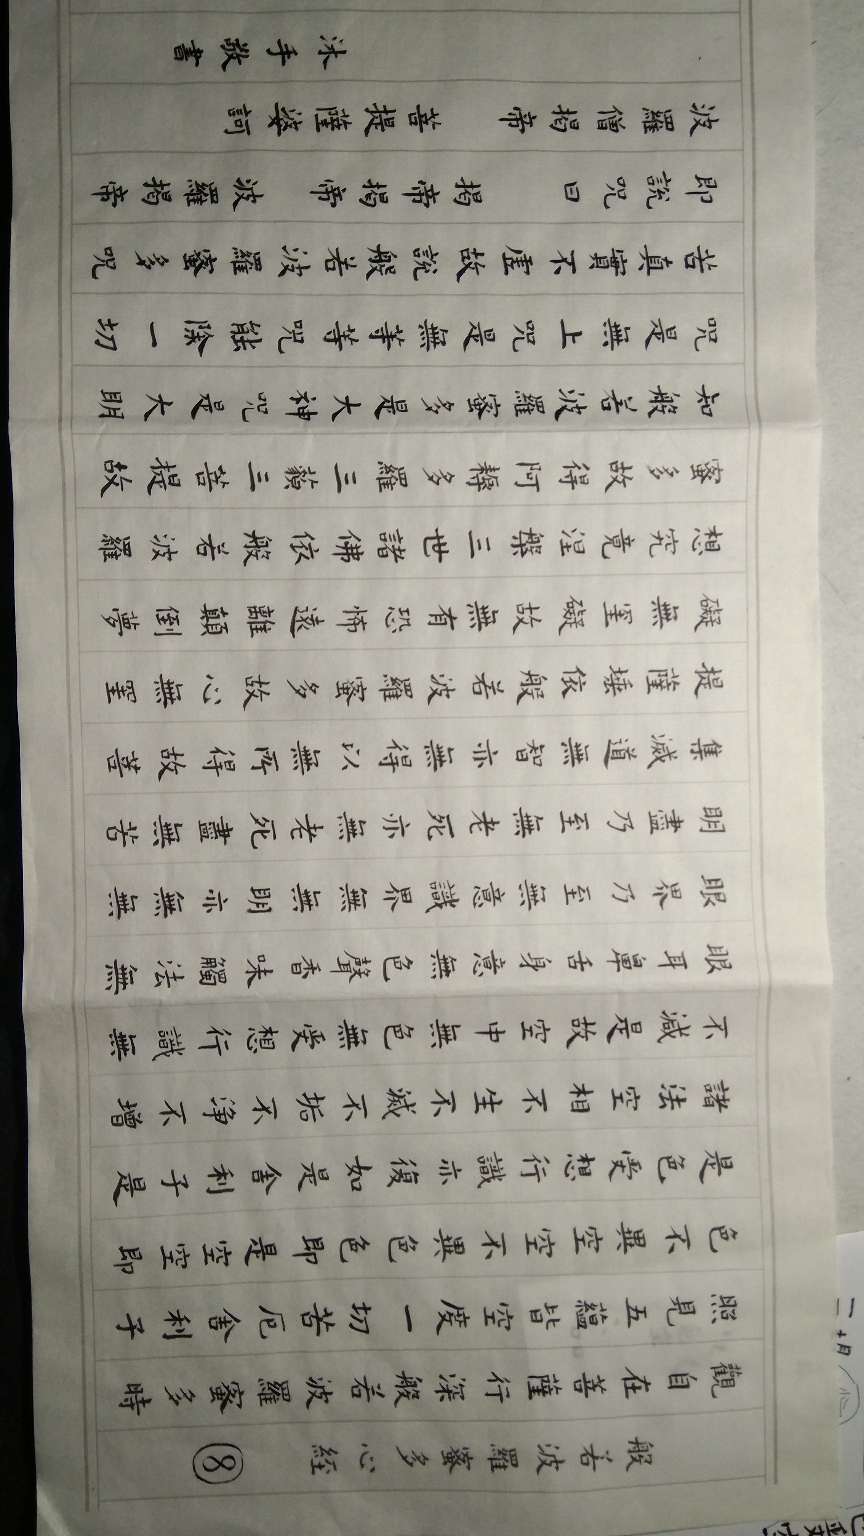 般若波羅蜜多心経 ⑧
觀自在菩薩行深般若波羅蜜多時
照見五蘊皆空度一切苦厄舍利子
色不異空空不異色色即是空空即
是色受想行識亦復如是舍利子是
諸法空相不生不滅不垢不淨不增
不減是故空中無色無受想行識無
眼耳鼻舌身意無色聲香味觸法無
眼界乃至無意識界無無明亦無無
明盡乃至無老死亦無老死盡無苦
集滅道無智亦無得以無所得故菩
提薩埵依般若波羅蜜多故心無罣
礙無罣礙故無有恐怖遠離顛倒夢
想究竟涅槃三世諸佛依般若波羅
蜜多故得阿耨多羅三藐三菩提故
知般若波羅蜜多是大神咒是大明
咒是無上咒是無等等咒能除一切
苦真實不虛故說般若波羅蜜多咒
即說咒曰 揭帝揭帝 波羅揭帝
波羅僧揭帝 菩提薩婆訶
沐手敬書